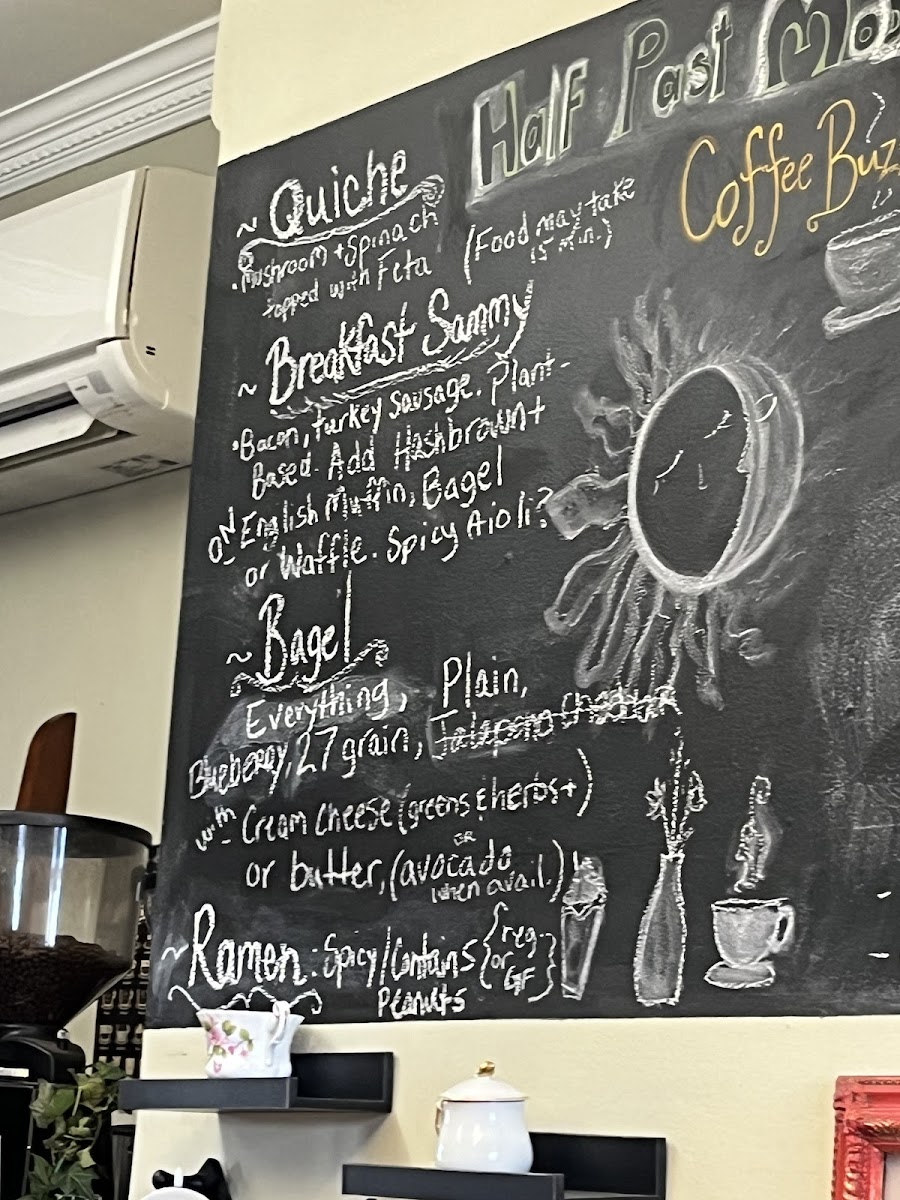 Half Past
Coffee
~ Quiche
• Mushroom + Spinach
topped with Feta
(Food may take
15 min.)
~ Breakfast Sammy
• Bacon, turkey sausage. Plant-
Based. Add Hashbrown+
ON English Muffin, Bagel
or Waffle. Spicy Aioli?
~ Bagel
Everything, Plain,
Blueberry, 27 grain, Jalapeno Cheddar
with Cream cheese (greens & herbs+)
or butter, (avocado
OR
when avail.)
~ Ramen: Spicy/Contains
Peanuts
{reg.
or
GF}